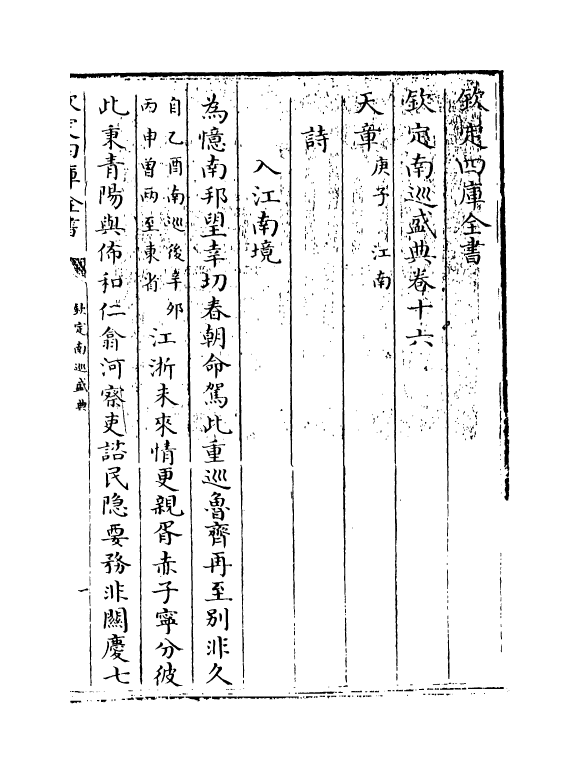 欽定四庫全書
欽定南巡盛典卷十六
天章庚子 江南
詩
入江南境
為憶南邦望幸切春朝命駕此重巡魯齊再至別非久
自乙酉南巡後辛夘
丙申曽兩至東省
江浙未來情更親胥赤子寜分彼
此秉青陽與佈和仁翕河察吏諮民隐要務非關慶七
欽定四庫全書
欽定南巡盛典
一